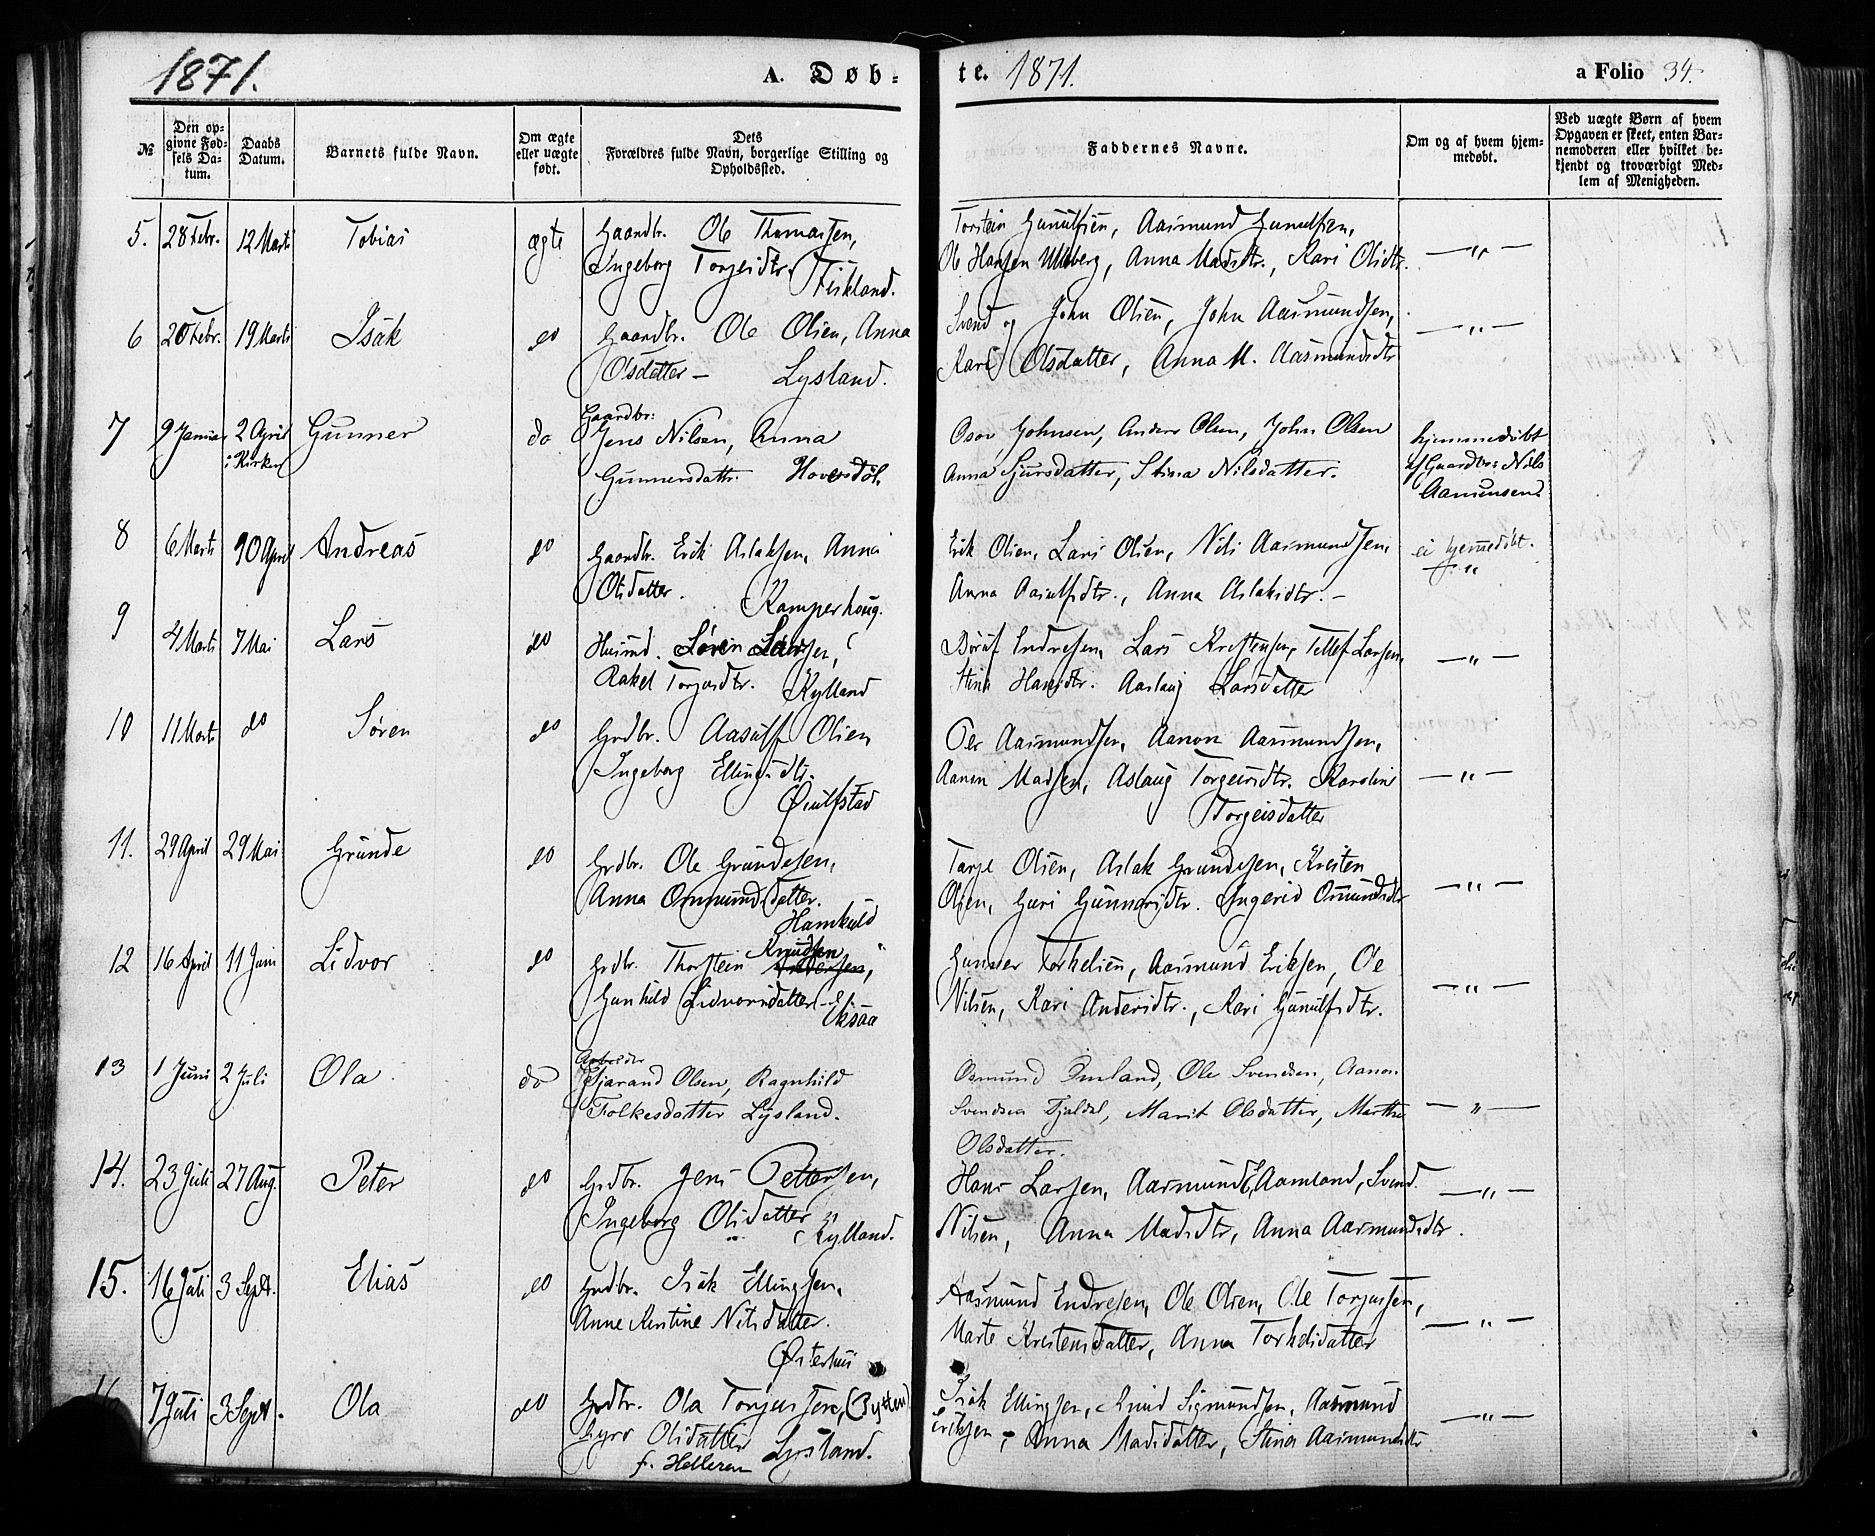 1871.
A. Døb-
te. 1871.
a Folio 34.
№
Den op-
givne Fød-
sels Da-
tum.
Daabs
Datum.
Barnets fulde Navn.
Om ægte
eller uægte
født.
Dets
Forældres fulde Navn, borgerlige Stilling og
Opholdssted.
Faddernes Navne.
Om og af hvem hjem-
medøbt.
Ved uægte Børn af hvem
Opgaven er skeet, enten Bar-
nemoderen eller hvilket be-
kjendt og troværdigt Med-
lem af Menigheden.
5. 28 Febr. 12 Marts Tobias ægte Gaardbr. Ole Thomassen,
Ingeborg Torjeidtr.
Fiskland.
Torstein Gunulfsen, Aasmund Gunulfsen,
Ole Hansen, Anna Madsdtr., Kari Olsdtr. — „ —
6 20 Febr. 19 Marts Isak do Gaardbr. Ole Olsen, Anna
Olsdatter — Lysland.
Svend og John Olsen, John Aasmundsen,
Kari Olsdatter, Anna M. Aasmundsdtr — „ —
7 9 Januar 2 April
i Kirken
Gunner do Gaardbr:
Jens Nilsen, Anna
Gunnersdattr. Hovesdøl.
Osov Johnsen, Anders Olsen, John Olsen
Anna Sjursdatter, Stina Nilsdatter.
hjemmedøbt
af Gaardbr: Nils
Aamundsen
8 6 Marts 10 April Andreas do Gaardbr. Erik Aslaksen, Anna
Olsdatter. Kamperhoug.
Erik Olsen, Lars Olsen, Nils Aasmundsen,
Anna Aasulfsdtr., Anna Aslaksdtr. —
ei hjemmedøbt.
— „
9 4 Marts 7 Mai Lars do Husmd. Søren Larsen,
Rakel Torjusdtr. Kylland
Børuf Endresen, Lars Kristensen, Tellef Larsen,
Stina Hansdtr. Aaslaug Larsdatter — „ —
10 11 Marts do Søren do Grdbr. Aasulf Olsen
Ingeborg Ellingsdtr.
Øiulfstad
Per Aasmundsen, Aanon Aasmundsen,
Aanen Madsen, Aslaug Torgeirsdtr. Karoline
Torgeisdatter — „ —
11. 29 April 29 Mai Grunde do Grdbr. Ole Grundesen,
Anna Ommundsdatter.
Hamkuld
Tarje Olsen, Aslak Grundesen, Kristen
Olsen, Guri Gunnarsdtr. Ingerid Osmundsdtr — „ —
12 16 April 11 Juni Lidvor do Grdbr. Thorstein Knudsen,
Gunhild Lidvorsdatter —
Eksaa
Gunner Torkelsen, Aasmund Eriksen, Ole
Nilsen, Kari Andersdtr., Kari Gunulfsdtr. — „ —
13 1 Juni 2 Juli Ola do Arbeider
Gjarand Olsen, Ragnhild
Folkesdatter Lysland.
Osmund Omland, Ole Svendsen, Aanon
Svendsen Fjeldal, Marit Olsdatter, Marthe
Olsdatter. — „ —
14. 23 Juli 27 Aug. Peter do Grdbr. Jens Pettersen,
Ingeborg Olsdatter, Kylland.
Hans Larsen, Aasmund E. Aamland, Svend
Nilsen, Anna Madsdtr, Anna Aasmundsdtr. — „ —
15. 16 Juli 3 Sept. Elias do Grdbr. Isak Ellingsen,
Anne Kirstine Nilsdatter.
Østerhus
Aasmund Endresen, Ole Olsen, Ole Torjussen,
Marte Kristensdatter, Anna Torkelsdatter — „ —
16 7 Juli 3 Sept. Ola do Grdbr. Ola Torjussen,
Gyro Olsdatter Lysland.
f. Helleren
Isak Ellingsen, Knud Sigmundsen, Aasmund
Eriksen, Anna Madsdatter, Stina Aasmundsdtr — „ —